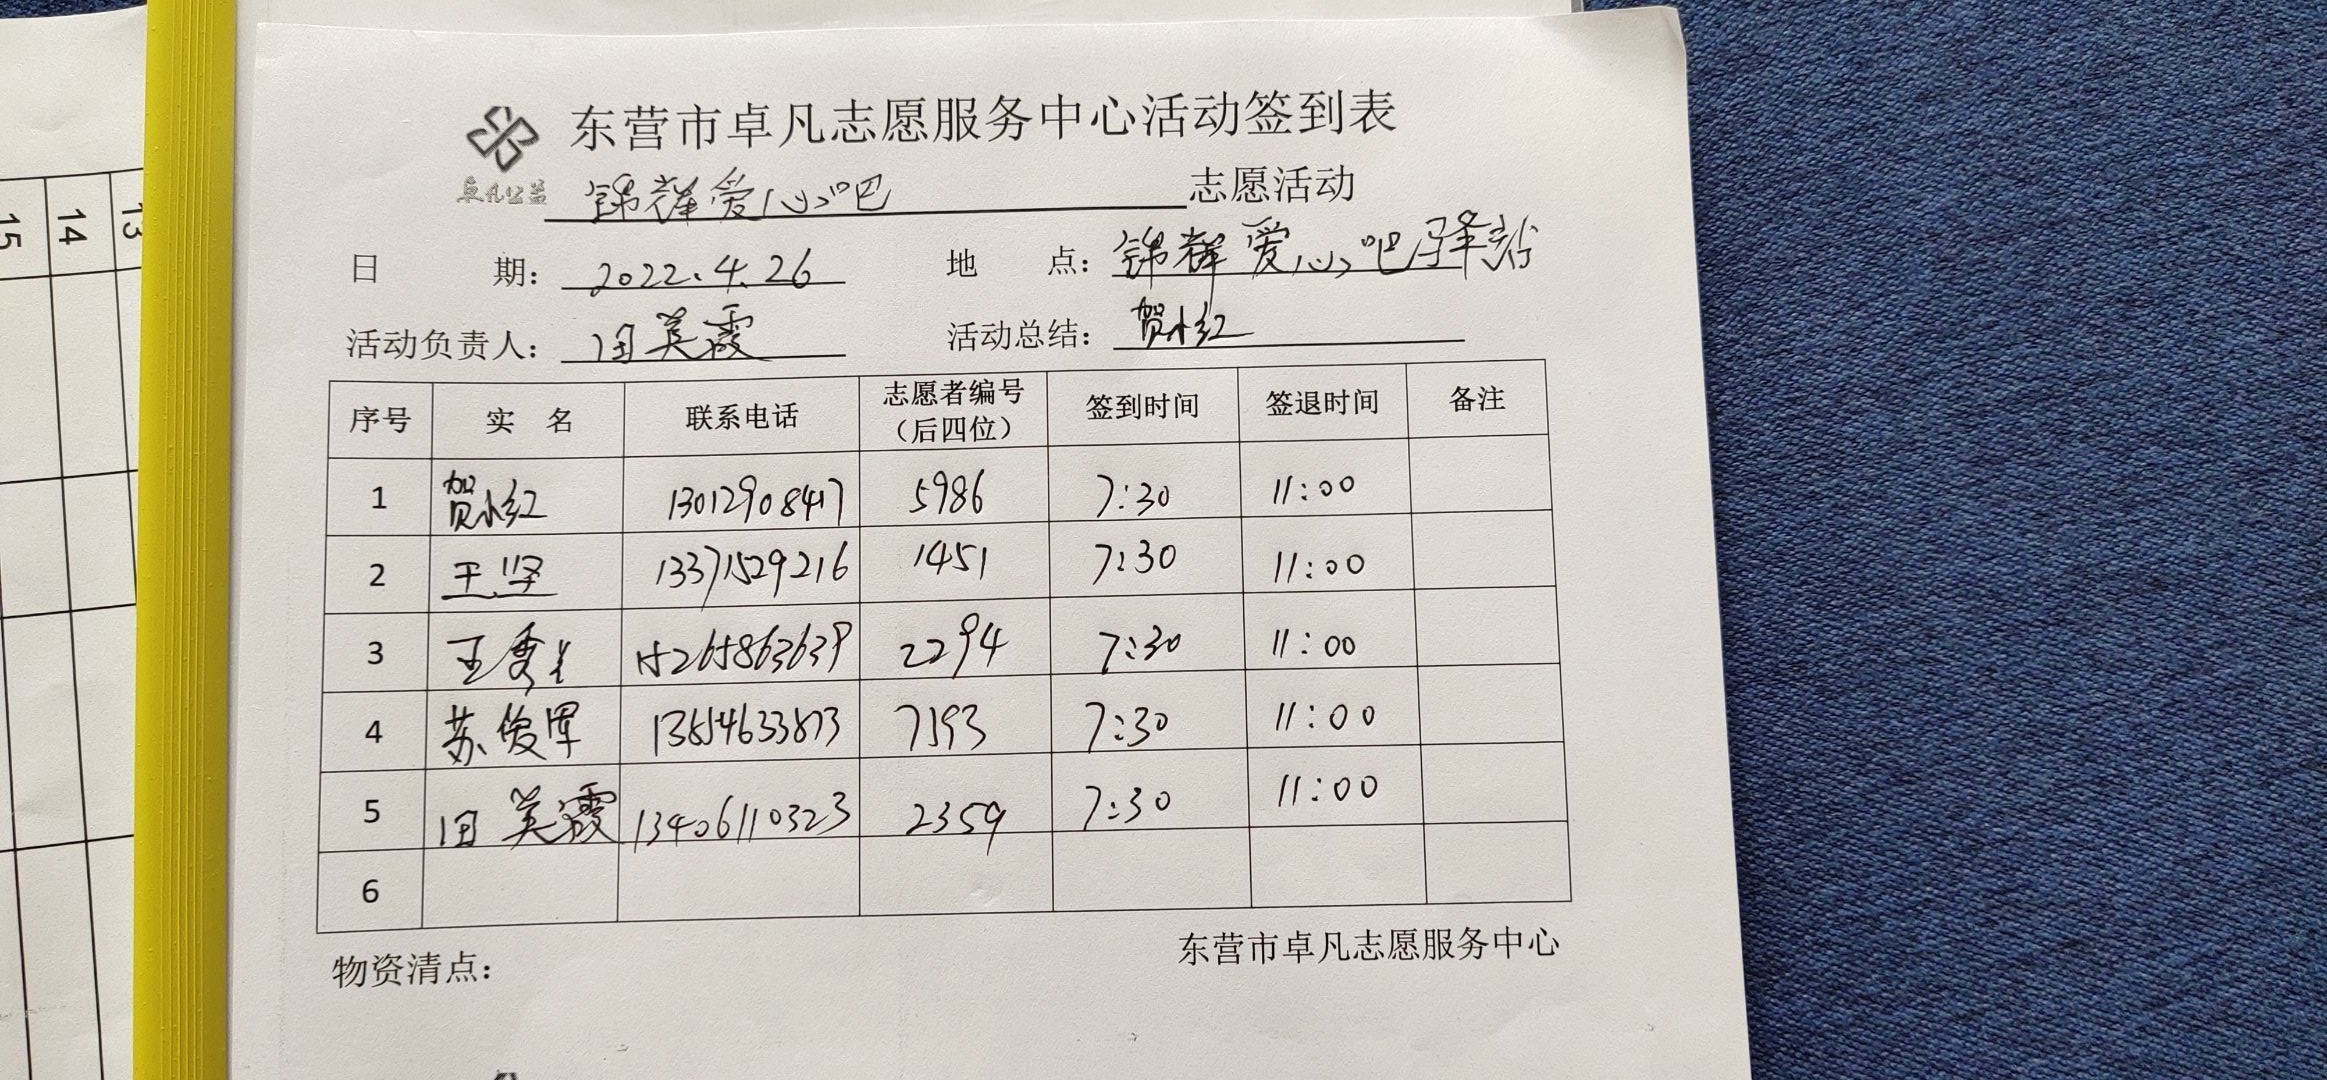 东营市卓凡志愿服务中心活动签到表
卓凡公益 锦辉爱心吧 志愿活动
日 期： 2022.4.26 地 点： 锦辉爱心吧驿站
活动负责人： 田美霞 活动总结： 贺小红
序号 实 名 联系电话 志愿者编号（后四位） 签到时间 签退时间 备注
1 贺小红 13012908417 5986 7:30 11:00
2 王坚 13371529216 1451 7:30 11:00
3 王秀 15265863639 2294 7:30 11:00
4 苏俊军 7193 7:30 11:00
5 田美霞 13406110323 2359 7:30 11:00
6
物资清点：
东营市卓凡志愿服务中心
15 14 13